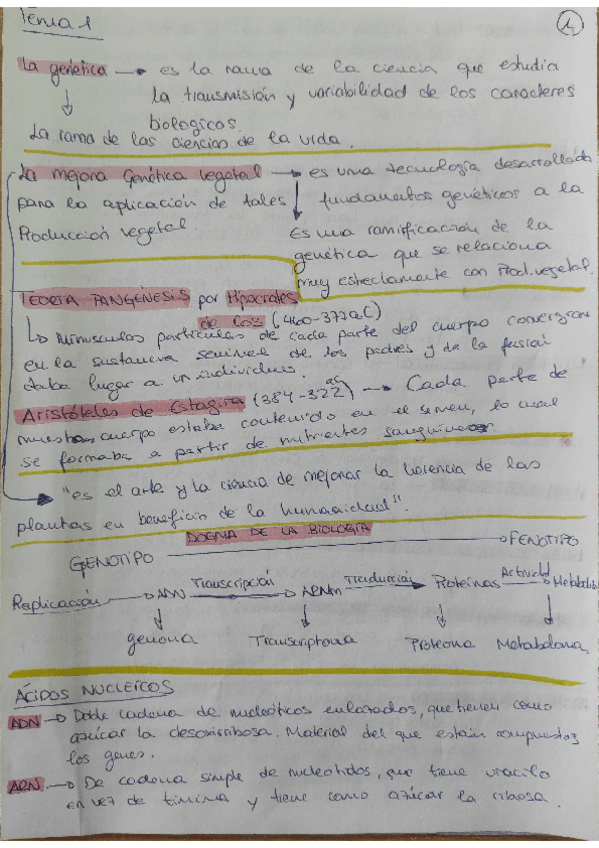 Tema 1
1
La genética → es la rama de la ciencia que estudia
la transmisión y variabilidad de los caracteres
biologicos.
La rama de las ciencias de la vida.
La mejora genética vegetal → es una tecnología desarrollada
para la aplicación de tales fundamentos genéticos a la
Producción vegetal.
Es una ramificación de la
genética que se relaciona
muy estrechamente con Prod. vegetal.
TEORIA PANGÉNESIS por Hipocrates
de Cos (460-377aC)
minusculas particulas de cada parte del cuerpo convergian
en la sustancia seminal de los padres y de la fusion
daba lugar a un individuo.
Aristóteles de Estagira (384-322 aC) → Cada parte de
nuestro cuerpo estaba contenido en el semen, lo cual
se formaba a partir de nutrientes sanguineos.
"es el arte y la ciencia de mejorar la herencia de las
plantas en beneficio de la humanidad".
DOGMA DE LA BIOLOGÍA
GENOTIPO → FENOTIPO
Replicación → ADN Transcripción → ARNm Traducción → Proteinas Actividad → Metabolitos
genoma Transcriptoma Proteoma Metaboloma
ÁCIDOS NUCLEICOS
ADN → Doble cadena de nucleóticos enlazados, que tienen como
azúcar la desoxirribosa. Material del que están compuestos
los genes.
ARN → De cadena simple de nucleotidos, que tiene uracilo
en vez de timina y tiene como azúcar la ribosa.